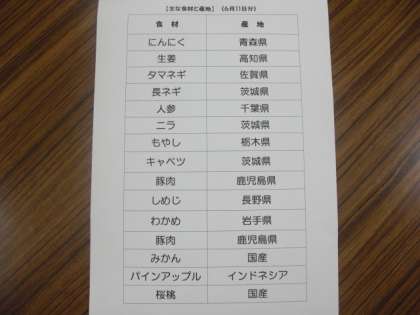 【主な食材と産地】 (6月11日分)
食 材 産 地
にんにく 青森県
生姜 高知県
タマネギ 佐賀県
長ネギ 茨城県
人参 千葉県
ニラ 茨城県
もやし 栃木県
キャベツ 茨城県
豚肉 鹿児島県
しめじ 長野県
わかめ 岩手県
豚肉 鹿児島県
みかん 国産
パインアップル インドネシア
桜桃 国産